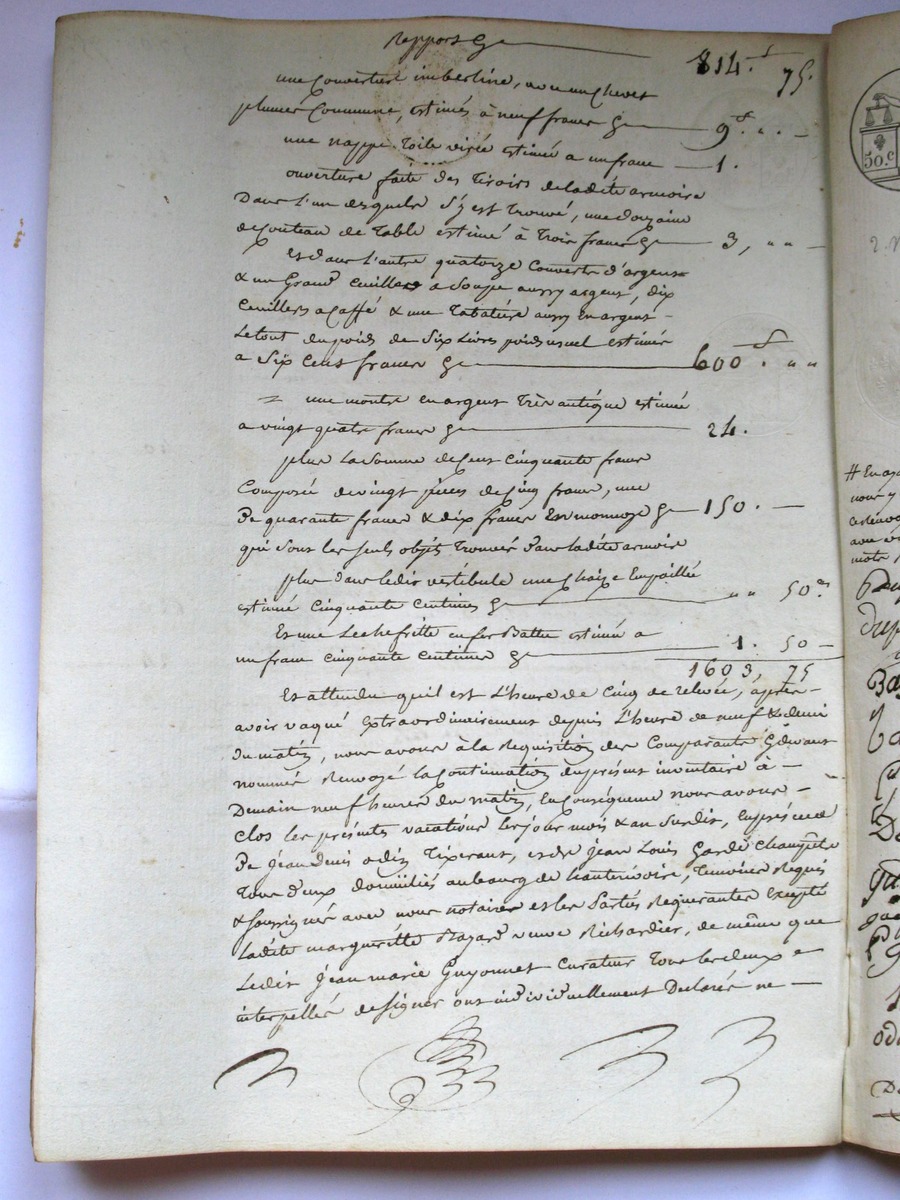 rapport Cy 814. f 75.
une Couverture imberline, avec un Chevet
plumes Commune, estimés à neuf francs Cy 9 f „ „
une nappe Toile virée estimée a un franc 1.
ouverture faite des Tiroirs de ladite armoire
Dans l'un desquels S'y est Trouvé, une Douzaine
de Couteau de Table estimé à Trois francs Cy 3, „ „
Et dans l'autre quatorze Couverts d'argent
& un Grand Cuillere a Soupe aussy argent, dix
Cuillers a Caffé & une Tabatière aussy En argent
Le tout du poids de Six Livres poids usuel estimés
a Six Cent francs Cy 600 f. „ „
= une montre en argent Très antique estimée
a vingt quatre francs Cy 24.
plus La Somme de Cent Cinquante francs
Composée de vingt pieces de Cinq francs, une
De quarante francs & dix francs En monnoye Cy 150.
qui Sont les Seuls objets Trouvés Dans ladite armoire
plus dans ledit vestibule une Chaize Empaillée
estimée Cinquante Centimes Cy „ „ 50 es
Et une Lechefritte en fer Battu estimée a
un franc cinquante Centimes Cy 1. 50
1603, 75
Et attendu qu'il est L'heure de Cinq de relevée, après
avoir vaqué Extraordinairement depuis L'heure de neuf & demi
Du matin, nous avons à la Requisition des Comparants Cydevant
nommés Renvoyé la Continuation du présent inventaire à
Demain neuf heures du matin, En Conséquence nous avons
Clos les présentes vacations les jour mois & an Susdit, En présence
De Jean Denis Tixerant, et de Jean Louis Garde Champêtre
Tous Deux domiciliés au bourg de hauterivoire, Temoins Requis
& Soussignés avec nous notaire et les Parties Requerantes Excepté
Ladite margueritte veuve Richardier, de même que
Ledit Jean marie Guyonnet Curateur Tous les deux
interpellés de signer ont individuellement Déclarés ne
50.c